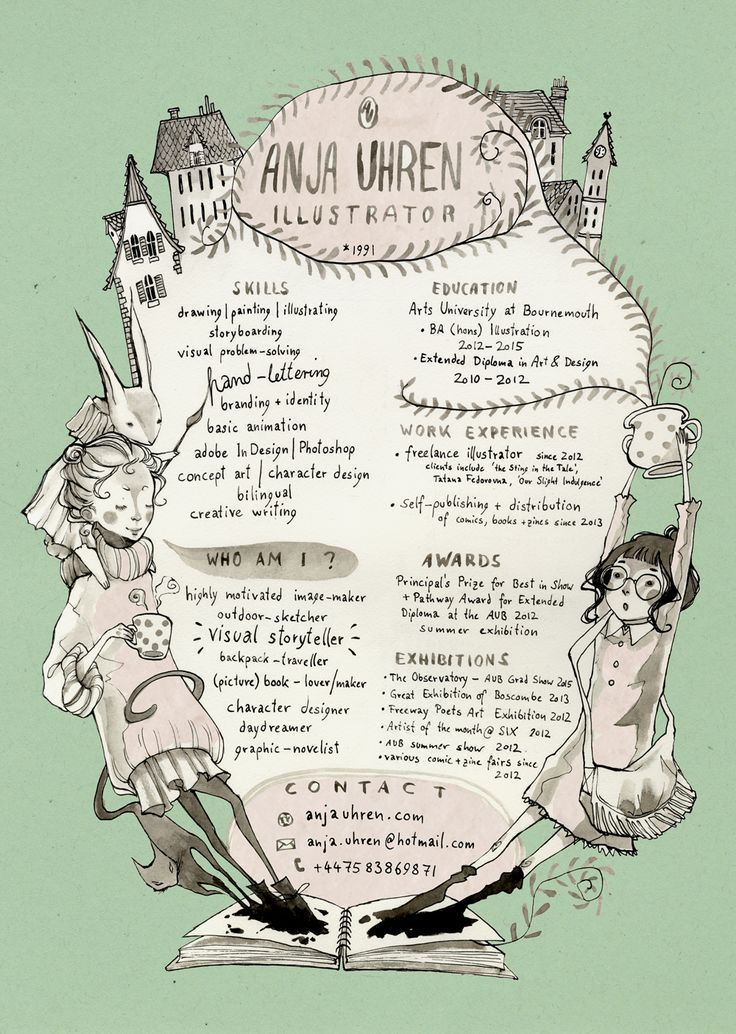 ANJA UHREN
ILLUSTRATOR
*1991
SKILLS
drawing | painting | illustrating
storyboarding
visual problem-solving
hand-lettering
branding + identity
basic animation
adobe InDesign | Photoshop
concept art | character design
bilingual
creative writing
WHO AM I ?
highly motivated image-maker
outdoor-sketcher
visual storyteller
backpack-traveller
(picture) book - lover/maker
character designer
daydreamer
graphic-novelist
EDUCATION
Arts University at Bournemouth
• BA (hons) Illustration
2012-2015
• Extended Diploma in Art & Design
2010-2012
WORK EXPERIENCE
• freelance illustrator since 2012
clients include 'the Sting in the Tale',
Tatana Fedorovna, 'Our Slight Indulgence'
• self-publishing + distribution
of comics, books + zines since 2013
AWARDS
Principal's Prize for Best in Show
+ Pathway Award for Extended
Diploma at the AUB 2012
summer exhibition
EXHIBITIONS
• The Observatory - AUB Grad Show 2015
• Great Exhibition of Boscombe 2013
• Freeway Poets Art Exhibition 2012
• Artist of the month @ SIX 2012
• AUB summer show 2012.
• various comic + zine fairs since
2012
CONTACT
anjauhren.com
anja.uhren@hotmail.com
+447583869871